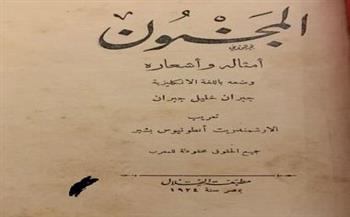 المجنون
أمثاله وأشعاره
وضعه باللغة الانكليزية
جبران خليل جبران
تعريب
الارشمندريت أنطونيوس بشير
جميع الحقوق محفوظة للمعرب
مطبعة الهلال
بمصر سنة ١٩٢٤